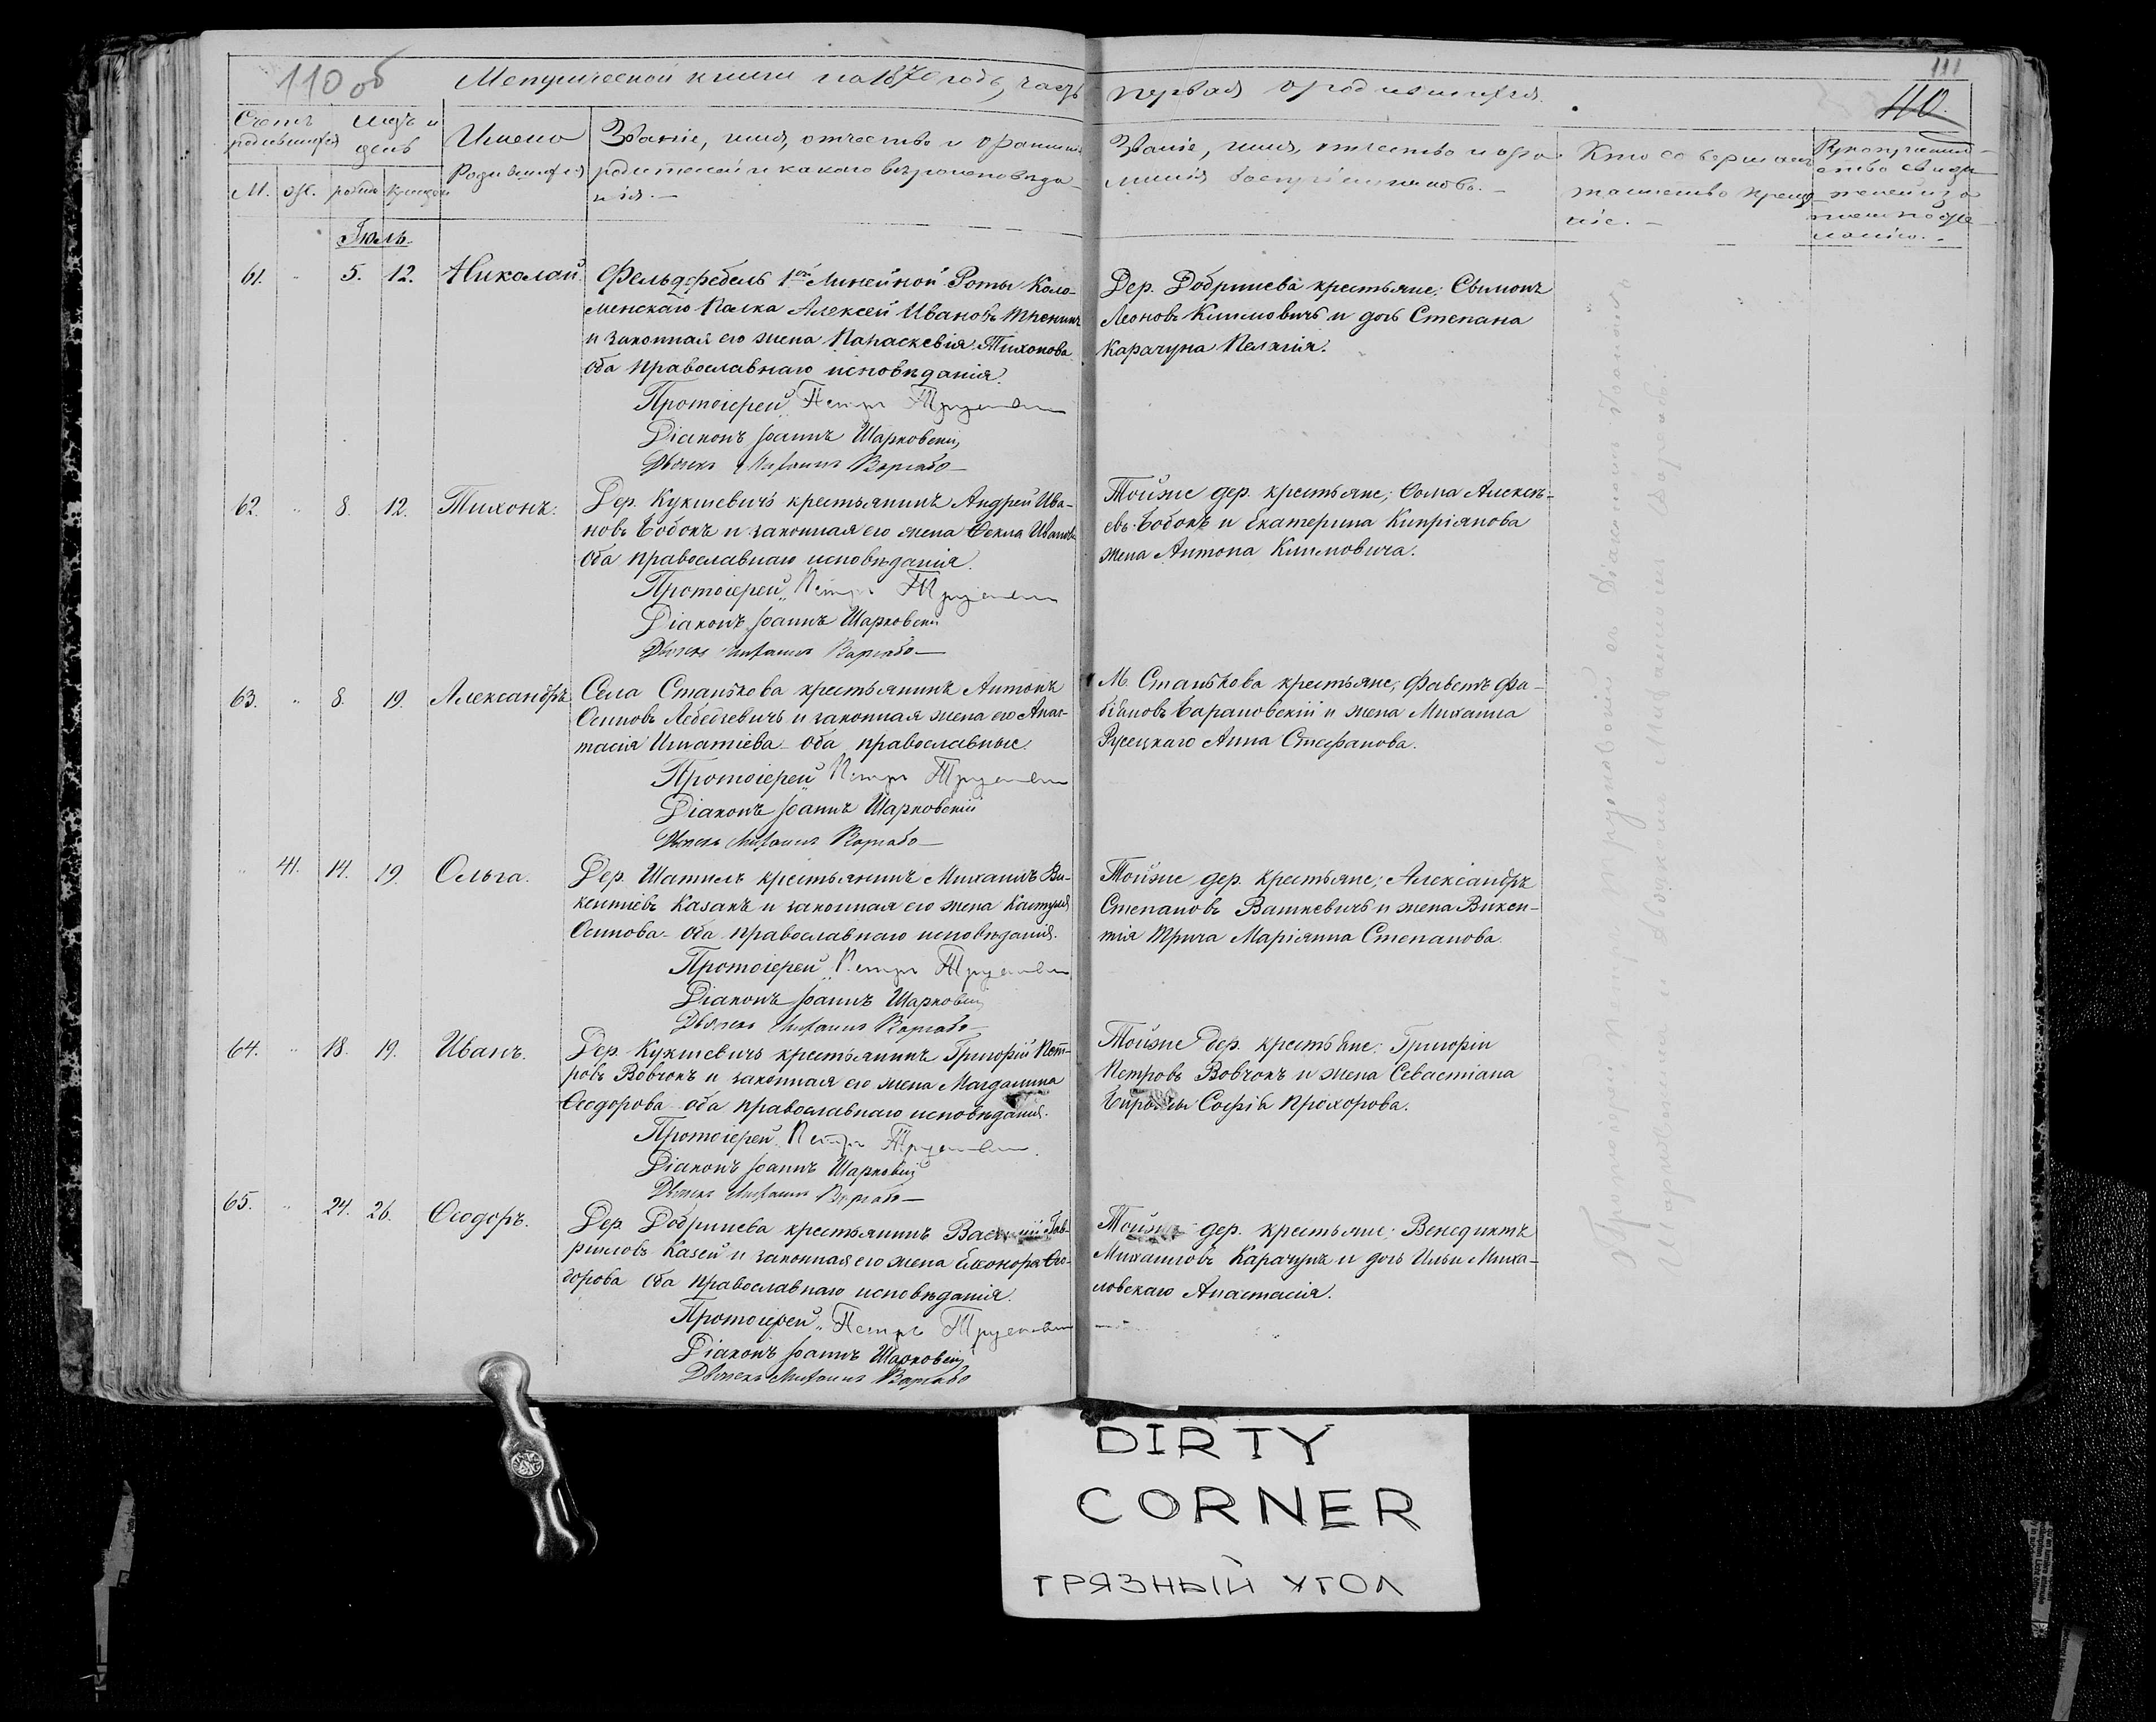 110 об
Метрической книги на 1870 годъ, часть первая о родившихся.
111
40.
Счетъ родившихся
Мѣсяцъ и день
Имена Родившихся
Званіе, имя, отчество и фамилія
родителей и какого вѣроисповѣда-
нія.—
М. ж. рожд. крещен.
Званіе, имя, отчество и фа-
милія воспріемниковъ.—
Кто совершалъ
таинство креще-
ніе.—
Рукоприклад-
ство свидѣ-
телей
по же-
ланію.
Іюль.
61. " 5. 12. Николай.
Фельдфебель 1ой Линейной Роты Коло-
менскаго Полка Алексей Ивановъ
и законная его жена Параскевія Тихонова
оба православнаго исповѣданія.
Протоіерей Петръ
Діаконъ Іоаннъ Шарковскій
Дьячекъ Михаилъ
Дер. Добринева крестьяне: Сѵмонъ
Леоновъ Климовичъ и дочь Степана
Карачуна Пелагія.
62. " 8. 12. Тихонъ.
Дер. Кукшевичъ крестьянинъ Андрей Ива-
новъ Бобокъ и законная его жена Ѳекла Иванова
оба православнаго исповѣданія.
Протоіерей Петръ
Діаконъ Іоаннъ Шарковскій
Дьячекъ Михаилъ
Тойже дер. крестьяне; Ѳома Алексѣ-
евъ Бобокъ и Екатерина Кипріянова
жена Антона Климовича.
63. " 8. 19. Александръ
Села Станькова крестьянинъ Антонъ
Осиповъ Лебедзевичъ и законная жена его Анас-
тасія Игнатіева оба православные.
Протоіерей Петръ
Діаконъ Іоаннъ Шарковскій
Дьячекъ Михаилъ
М. Станькова крестьяне, Фа-
біановъ Барановскій и жена Михаила
Русецкаго Анна Стефанова.
" 41. 14. 19. Ольга.
Дер. Шатилъ крестьянинъ Михаилъ Ви-
кентиевъ Казакъ и законная его жена
Осипова оба православнаго исповѣданія.
Протоіерей Петръ
Діаконъ Іоаннъ Шарковскій
Дьячекъ Михаилъ
Тойже дер. крестьяне; Александръ
Степановъ Вашкевичъ и жена Викен-
тія Маріянна Степанова.
64. " 18. 19. Иванъ.
Дер. Кукшевичъ крестьянинъ Григорій Пет-
ровъ Вовчокъ и законная его жена Магдалина
Ѳеодорова оба православнаго исповѣданія.
Протоіерей Петръ
Діаконъ Іоаннъ Шарковскій
Дьячекъ Михаилъ
Тойже дер. крестьяне: Григорій
Петровъ Вовчокъ и жена Севастіана
Софія Прохорова.
65. " 24. 26. Ѳеодоръ.
Дер. Добринева крестьянинъ Василій Гав-
риловъ Касей и законная его жена Елеонора Ѳео-
дорова оба православнаго исповѣданія.
Протоіерей Петръ
Діаконъ Іоаннъ Шарковскій
Дьячекъ Михаилъ
Тойже дер. крестьяне; Венедиктъ
Михаиловъ Карачунъ и дочь Ильи Миха-
ловскаго Анастасія.
Протоіерей съ Діакономъ Іоанномъ
Шарковскимъ и Дьячкомъ Михаиломъ
DIRTY
CORNER
ГРЯЗНЫЙ УГОЛ